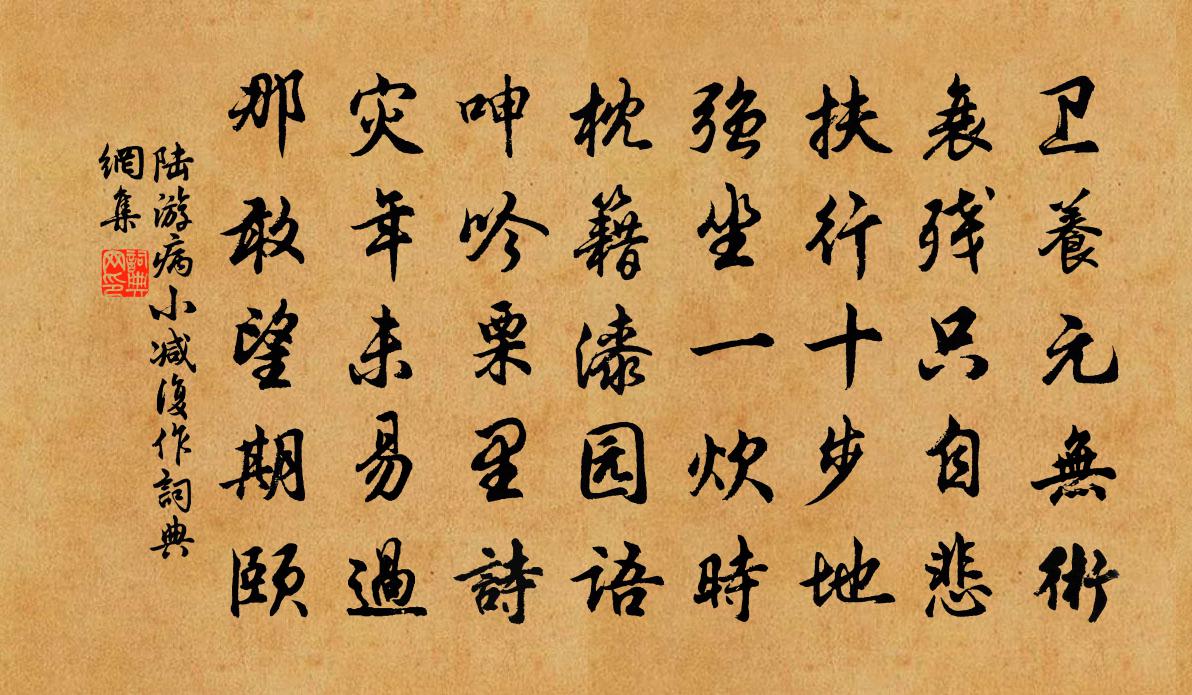 卫養元無術
衰残只自悲
扶行十步地
强坐一炊時
枕籍漆园语
呻吟栗里詩
灾年未易過
那敢望期颐
陆游病小减復作詞典
網集
詞典
网印